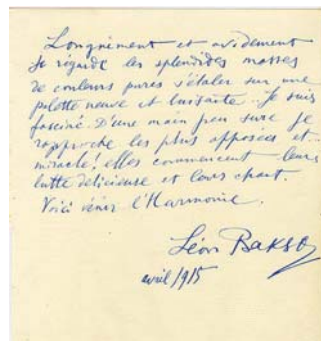 Longuement et avidement
je regarde les splendides masses
de couleurs pures s'étaler sur une
palette neuve et luisante. Je suis
fasciné. D'une main peu sure je
rapproche les plus opposées et...
miracle! elles commencent leur
lutte délicieuse et leurs chant.
Voici venir l'Harmonie.
Léon Bakst
avril/1915